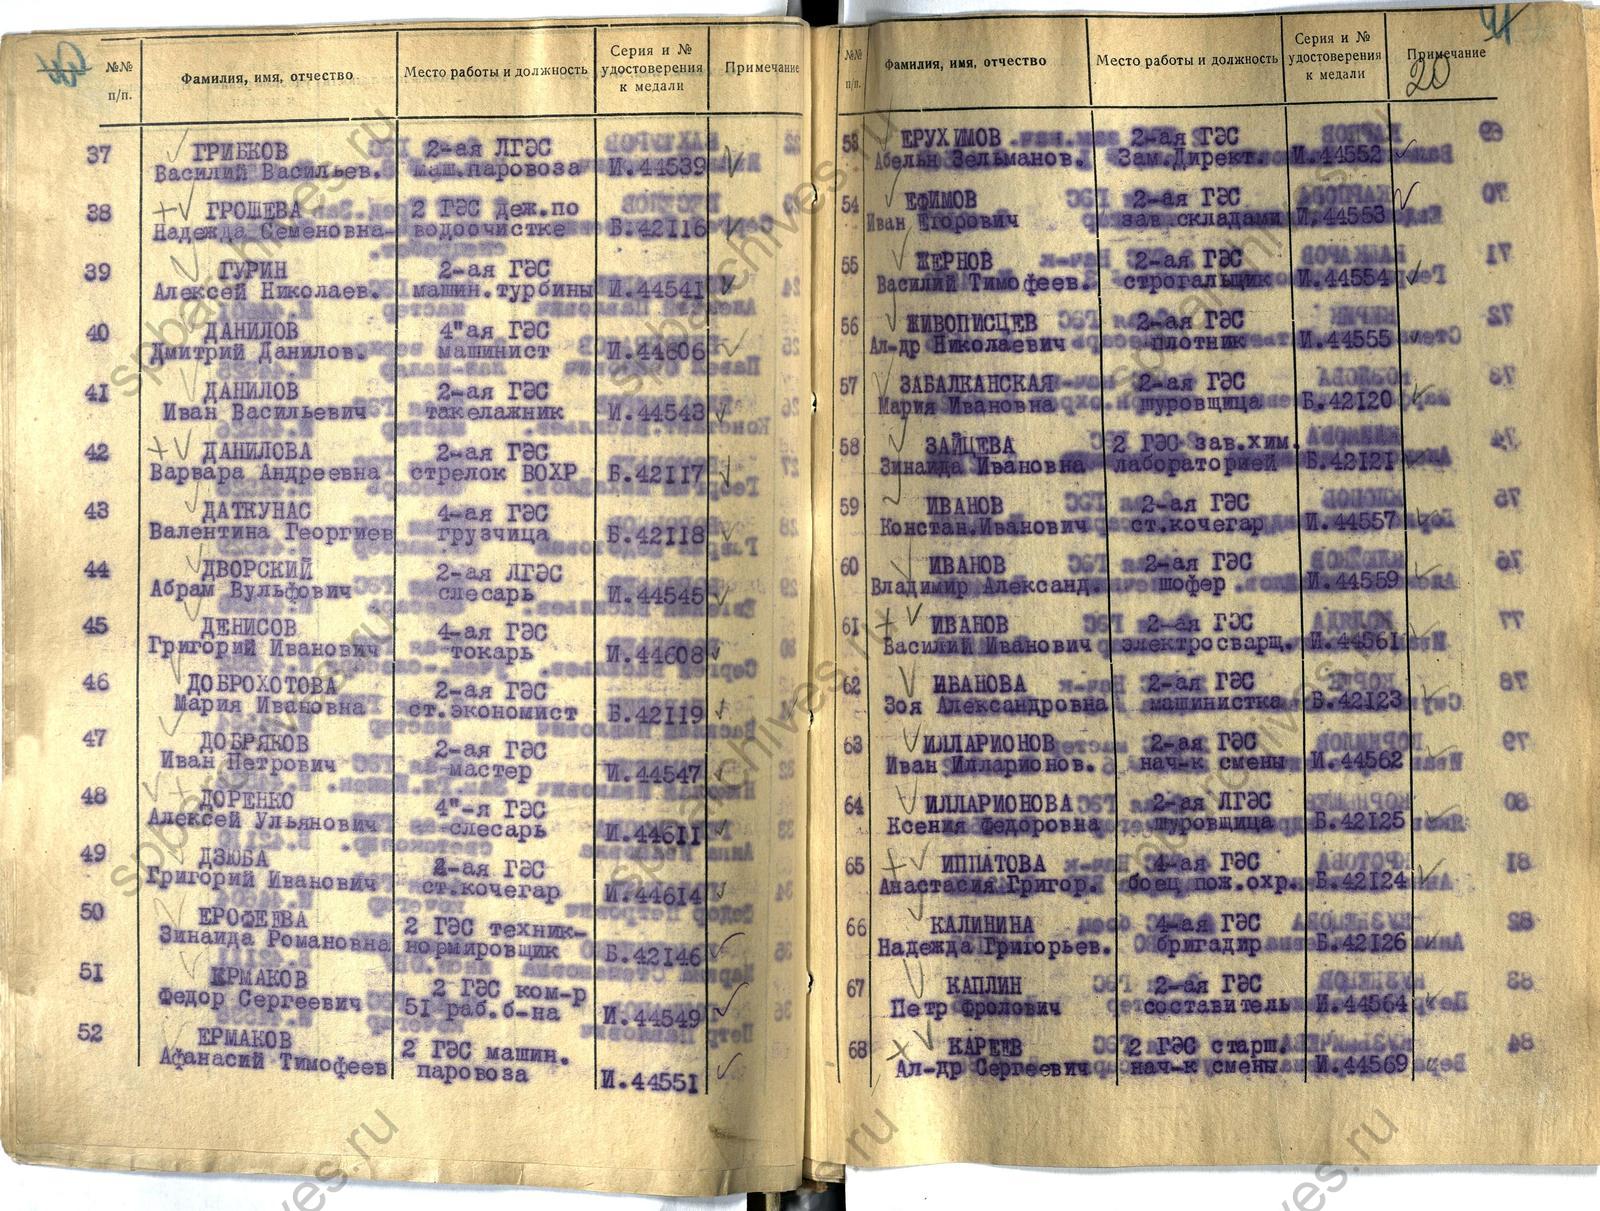 №№ п/п.
Фамилия, имя, отчество
Место работы и должность
Серия и № удостоверения к медали
Примечание
37 ГРИБКОВ 2-ая ЛГЭС
Василий Васильев. маш.паровоза И.44539
38 ГРОШЕВА 2 ГЭС деж.по
Надежда Семеновна водоочистке Б.42116
39 ГУРИН 2-ая ГЭС
Алексей Николаев. машин.турбины И.44541
40 ДАНИЛОВ 4"ая ГЭС
Дмитрий Данилов. машинист И.44606
41 ДАНИЛОВ 2-ая ГЭС
Иван Васильевич такелажник И.44543
42 ДАНИЛОВА 2-ая ГЭС
Варвара Андреевна стрелок ВОХР Б.42117
43 ДАТКУНАС 4-ая ГЭС
Валентина Георгиев грузчица Б.42118
44 ДВОРСКИЙ 2-ая ЛГЭС
Абрам Вульфович слесарь И.44545
45 ДЕНИСОВ 4-ая ГЭС
Григорий Иванович токарь И.44608
46 ДОБРОХОТОВА 2-ая ГЭС
Мария Ивановна ст.экономист Б.42119
47 ДОБРЯКОВ 2-ая ГЭС
Иван Петрович мастер И.44547
48 ДОРЕНКО 4"-я ГЭС
Алексей Ульянович слесарь И.44611
49 ДЗЮБА ГЭС
Григорий Иванович ст.кочегар И.44614
50 ЕРОФЕЕВА 2 ГЭС техник-
Зинаида Романовна нормировщик Б.42146
51 ЕРМАКОВ 2 ГЭС ком-р
Федор Сергеевич 51 раб.б-на И.44549
52 ЕРМАКОВ 2 ГЭС машин.
Афанасий Тимофеев паровоза И.44551
№№ п/п.
Фамилия, имя, отчество
Место работы и должность
Серия и № удостоверения к медали
Примечание
20
53 ЕРУХИМОВ 2-ая ГЭС
Абельн Зельманов. Зам.Директ. И.44552
54 ЕФИМОВ 2-ая ГЭС
Иван Егорович зав.складами И.44553
55 ЖЕРНОВ 2-ая ГЭС
Василий Тимофеев. строгальщик И.44554
56 ЖИВОПИСЦЕВ 2-ая ГЭС
Ал-др Николаевич плотник И.44555
57 ЗАБАЛКАНСКАЯ 2-ая ГЭС
Мария Ивановна шуровщица Б.42120
58 ЗАЙЦЕВА 2 ГЭС зав.хим.
Зинаида Ивановна лабораторией Б.42121
59 ИВАНОВ 2-ая ГЭС
Констан.Иванович ст.кочегар И.44557
60 ИВАНОВ 2-ая ГЭС
Владимир Александ. шофер И.44559
61 ИВАНОВ 2-ая ГЭС
Василий Иванович электросварщ. И.44561
62 ИВАНОВА 2-ая ГЭС
Зоя Александровна машинистка Б.42123
63 ИЛЛАРИОНОВ 2-ая ГЭС
Иван Илларионов. нач-к смены И.44562
64 ИЛЛАРИОНОВА 2-ая ЛГЭС
Ксения Федоровна шуровщица Б.42125
65 ИППАТОВА 4-ая ГЭС
Анастасия Григор. боец пож.охр. Б.42124
66 КАЛИНИНА 4-ая ГЭС
Надежда Григорьев. бригадир Б.42126
67 КАПЛИН 2-ая ГЭС
Петр Фролович составитель И.44564
68 КАРЕЕВ 2 ГЭС старш.
Ал-др Сергеевич нач-к смены И.44569